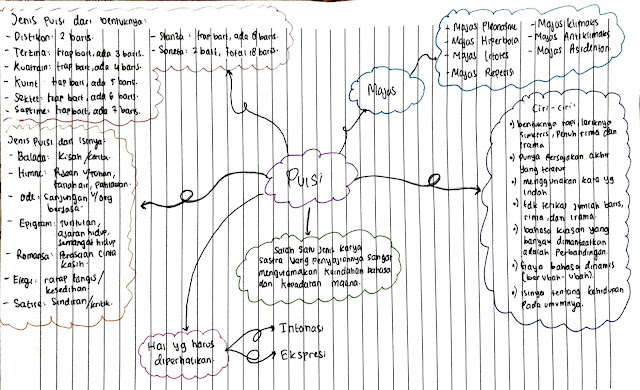 Jenis Puisi dari bentuknya:
- Distikon: 2 baris.
- Terzina: tiap bait, ada 3 baris.
- Kuatrain: tiap bait, ada 4 baris.
- Kuint: tiap bait, ada 5 baris.
- Sektet: tiap bait, ada 6 baris.
- Septime: tiap bait, ada 7 baris.
- Stanza: tiap bait, ada 8 baris.
- Soneta: 2 bait, total 18 baris.
- Majas Pleonasme
- Majas Hiperbola
- Majas Litotes
- Majas Repetisi
- Majas Klimaks
- Majas Antiklimaks
- Majas Asidenton.
Majas
Jenis Puisi dari isinya:
- Balada: Kisah/cerita.
- Himne: Pujaan u/tuhan,
tanah air, pahlawan.
- Ode: Sanjungan u/org
berjasa.
- Epigram: Tuntutan,
ajaran hidup,
semangat hidup
- Romansa: Perasaan cinta
kasih.
- Elegi: ratap tangis/
kesedihan.
- Satire: Sindiran/kritik.
Puisi
Ciri-ciri:
•) bentuknya rapi, lariknya
simetris, Penuh rima dan
irama
•) Punya Persajakan akhir
yang teratur
•) menggunakan kata yg
indah
•) tdk terikat jumlah baris,
rima, dan irama.
•) bahasa kiasan yang
banyak dimanfaatkan
adalah Perbandingan.
•) Gaya bahasa dinamis
(berubah-ubah).
•) Isinya tentang kehidupan
Pada umumnya.
Salah satu jenis karya
sastra yang penyajiannya sangat
mengutamakan keindahan bahasa
dan kepadatan makna.
Hal yg harus
diperhatikan.
Intonasi
Ekspresi